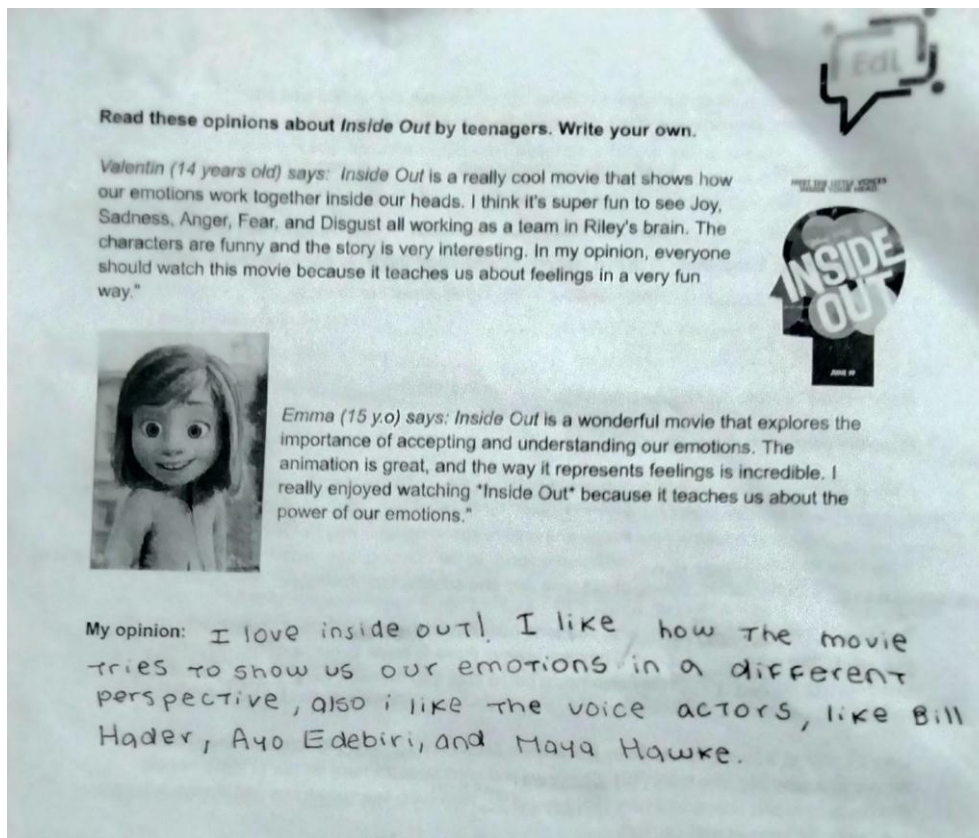 EdL
Read these opinions about Inside Out by teenagers. Write your own.
Valentin (14 years old) says: Inside Out is a really cool movie that shows how
our emotions work together inside our heads. I think it's super fun to see Joy,
Sadness, Anger, Fear, and Disgust all working as a team in Riley's brain. The
characters are funny and the story is very interesting. In my opinion, everyone
should watch this movie because it teaches us about feelings in a very fun
way."
MEET THE LITTLE VOICES
INSIDE YOUR HEAD.
INSIDE
OUT
JUNE 19
Emma (15 y.o) says: Inside Out is a wonderful movie that explores the
importance of accepting and understanding our emotions. The
animation is great, and the way it represents feelings is incredible. I
really enjoyed watching *Inside Out* because it teaches us about the
power of our emotions."
My opinion: I love inside out! I like how The movie
Tries To show us our emotions in a different
perspective, also i like The voice actors, like Bill
Hader, Ayo Edebiri, and Maya Hawke.